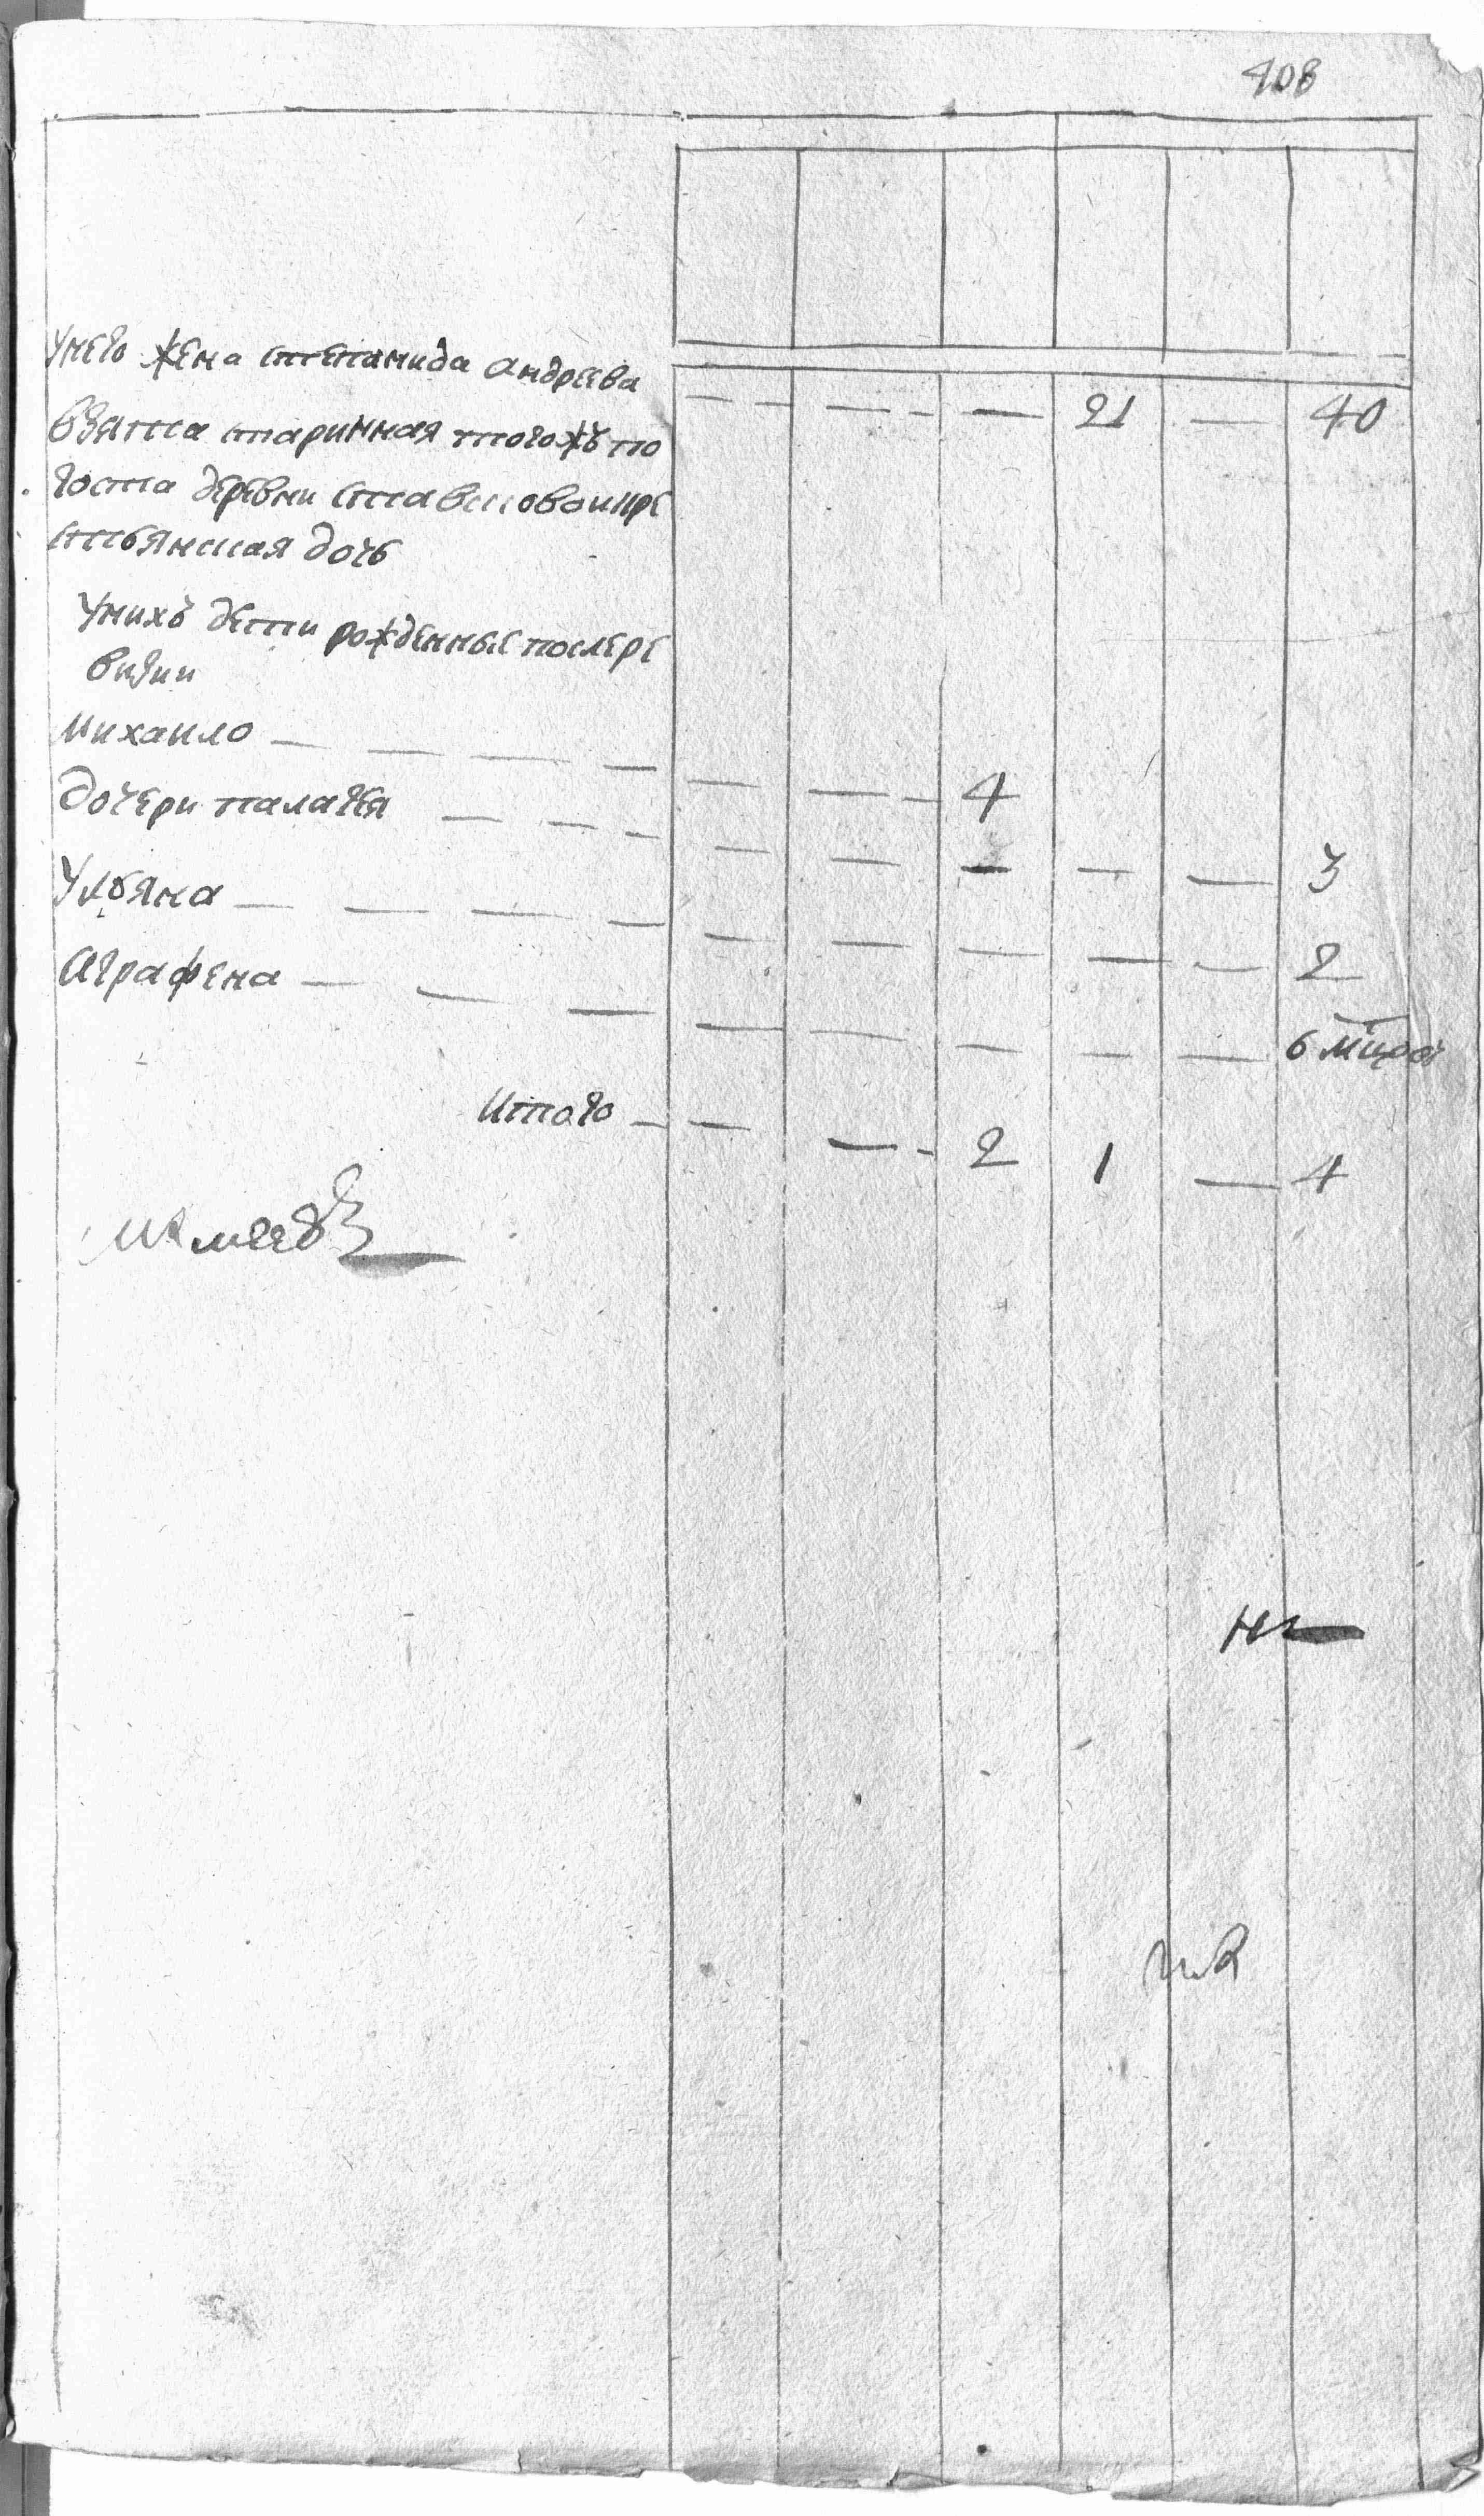 408
Унего жена степанида андреева — 21 — 40
взята старинная тогожъ по
госта деревни ставсковои кре
стьянская дочь
Унихъ дети рожденные послере
визии
Михаило — 4
дочери палагея — 3
Ульяна — 2
Аграфена — 6 мцовъ
Итого — 2 1 — 4